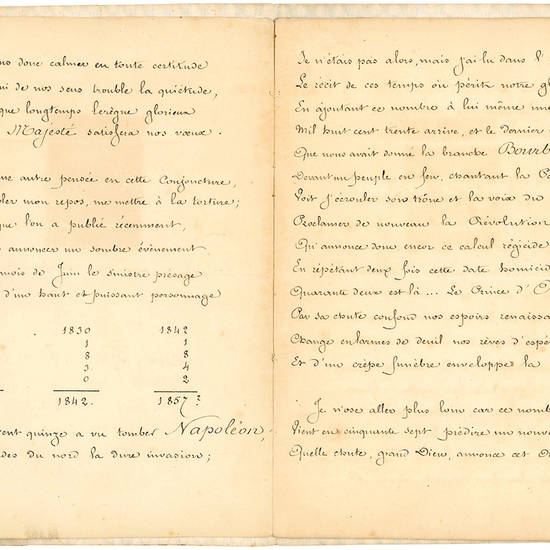 ns donc calmer en toute certitude
ui de nos sens trouble la quiétude,
que longtemps le règne glorieux
Majesté satisfera nos vœux.
ne autre pensée en cette Conjoncture,
bler mon repos, me mettre à la torture;
que l'on a publié récemment,
annoncer un sombre évènement
mois de Juin le sinistre présage
d'un haut et puissant personnage
1830 1842
1 1
8 8
3 4
0 2
1842. 1857?
cent quinze a vu tomber Napoléon,
des du nord la dure invasion;
Je n'étais pas alors, mais j'ai lu dans l'
Le récit de ces temps où périt notre gl
En ajoutant ce nombre à lui même une
Mil huit cent trente arrive, et le dernier
Que nous avait donné la branche Bourb
Devant un peuple en feu, chantant la Pa
Voit s'écrouler son trône et la voix du
Proclamer de nouveau la Révolution
Qui annonce donc encor ce calcul régicide
En répétant deux fois cette date homicid
Quarante deux est là ... Le Prince d'
Par sa chute confond nos espoirs renaissa
Change en larmes de deuil nos rêves d'espé
Et d'un crêpe funèbre enveloppe la
Je n'ose aller plus loin car ce nomb
Vient en cinquante sept prédire un nouve
Quelle chute, grand Dieu, annonce cet